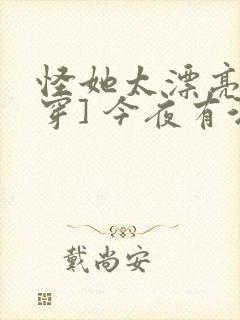 怪她太漂亮
穿]今夜有
戴尚安